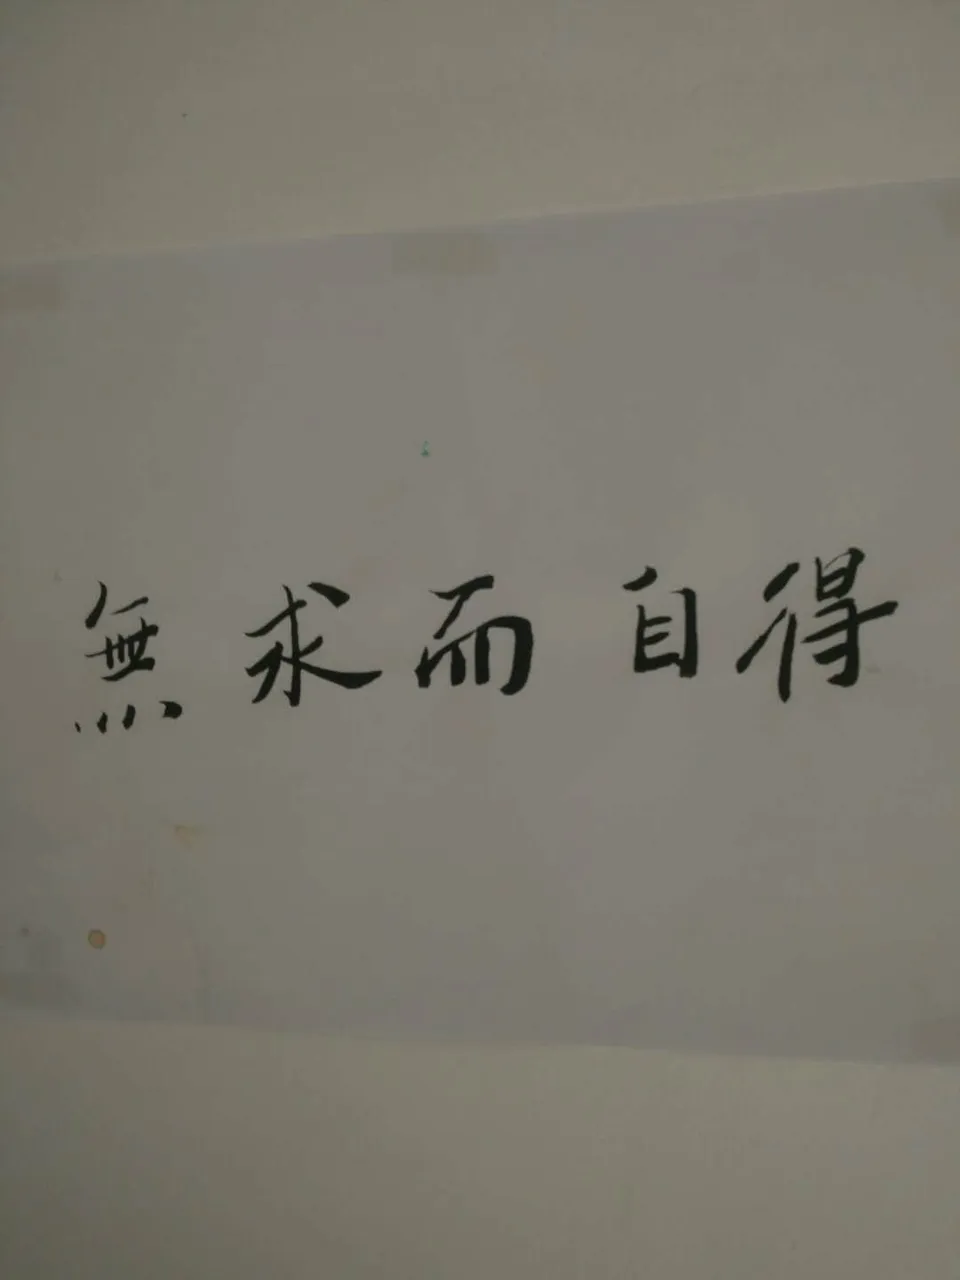 無求而自得